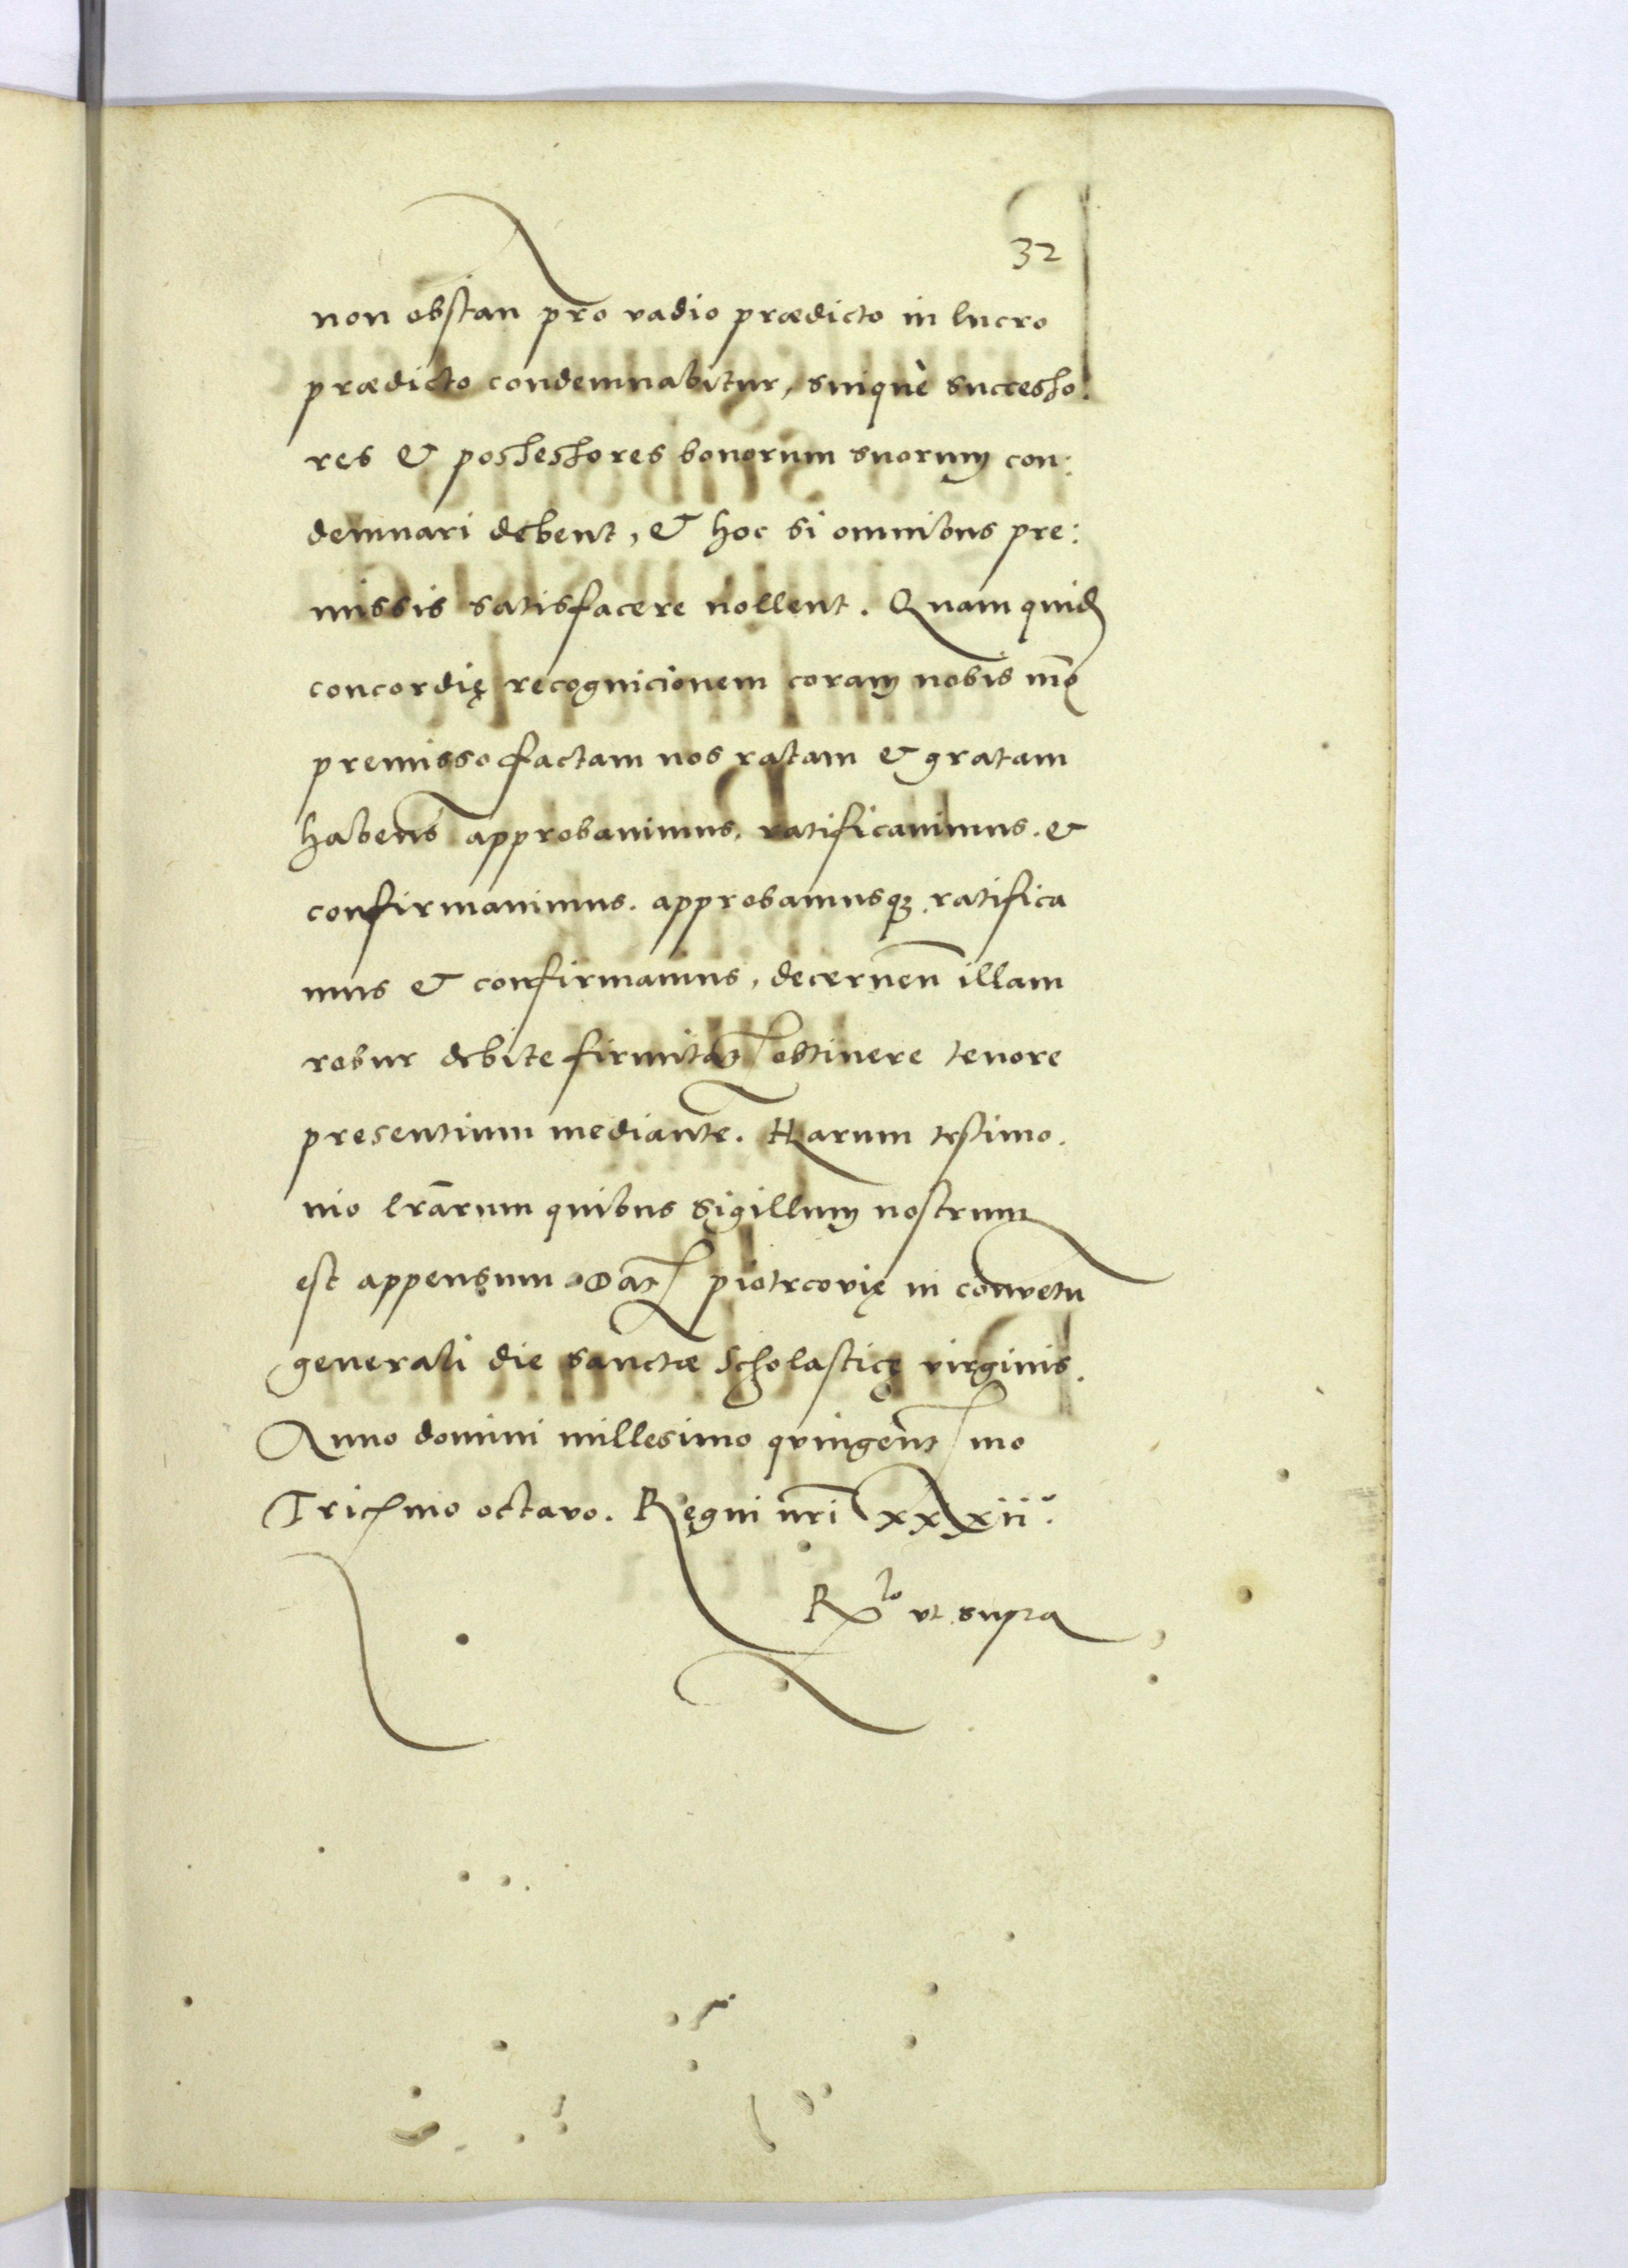 32
non obstan pro vadio prædicto in lucro
prædicto condemnabitur, suiquè successo.
res & possessores bonorum suorum con:
demnari debent, & hoc si omnibus pre:
missis satisfacere nollent. Quam quid
concordię recognicionem coram nobis mo
premisso factam nos ratam & gratam
habens approbavimus, ratificavimus. &
confirmavimus. approbamusq3 ratifica
mus & confirmamus, decernen illam
robur debite firmitat obtinere tenore
presentium mediante. Harum testimo.
nio lrarum quibus sigillum nostrum
est appensum Dat piotrcovię in convetu
generali die sanctæ Scholasticę virginis.
Anno domini millesimo quingent mo
Tric mo octavo. Regni nri xxxii.
ut supra